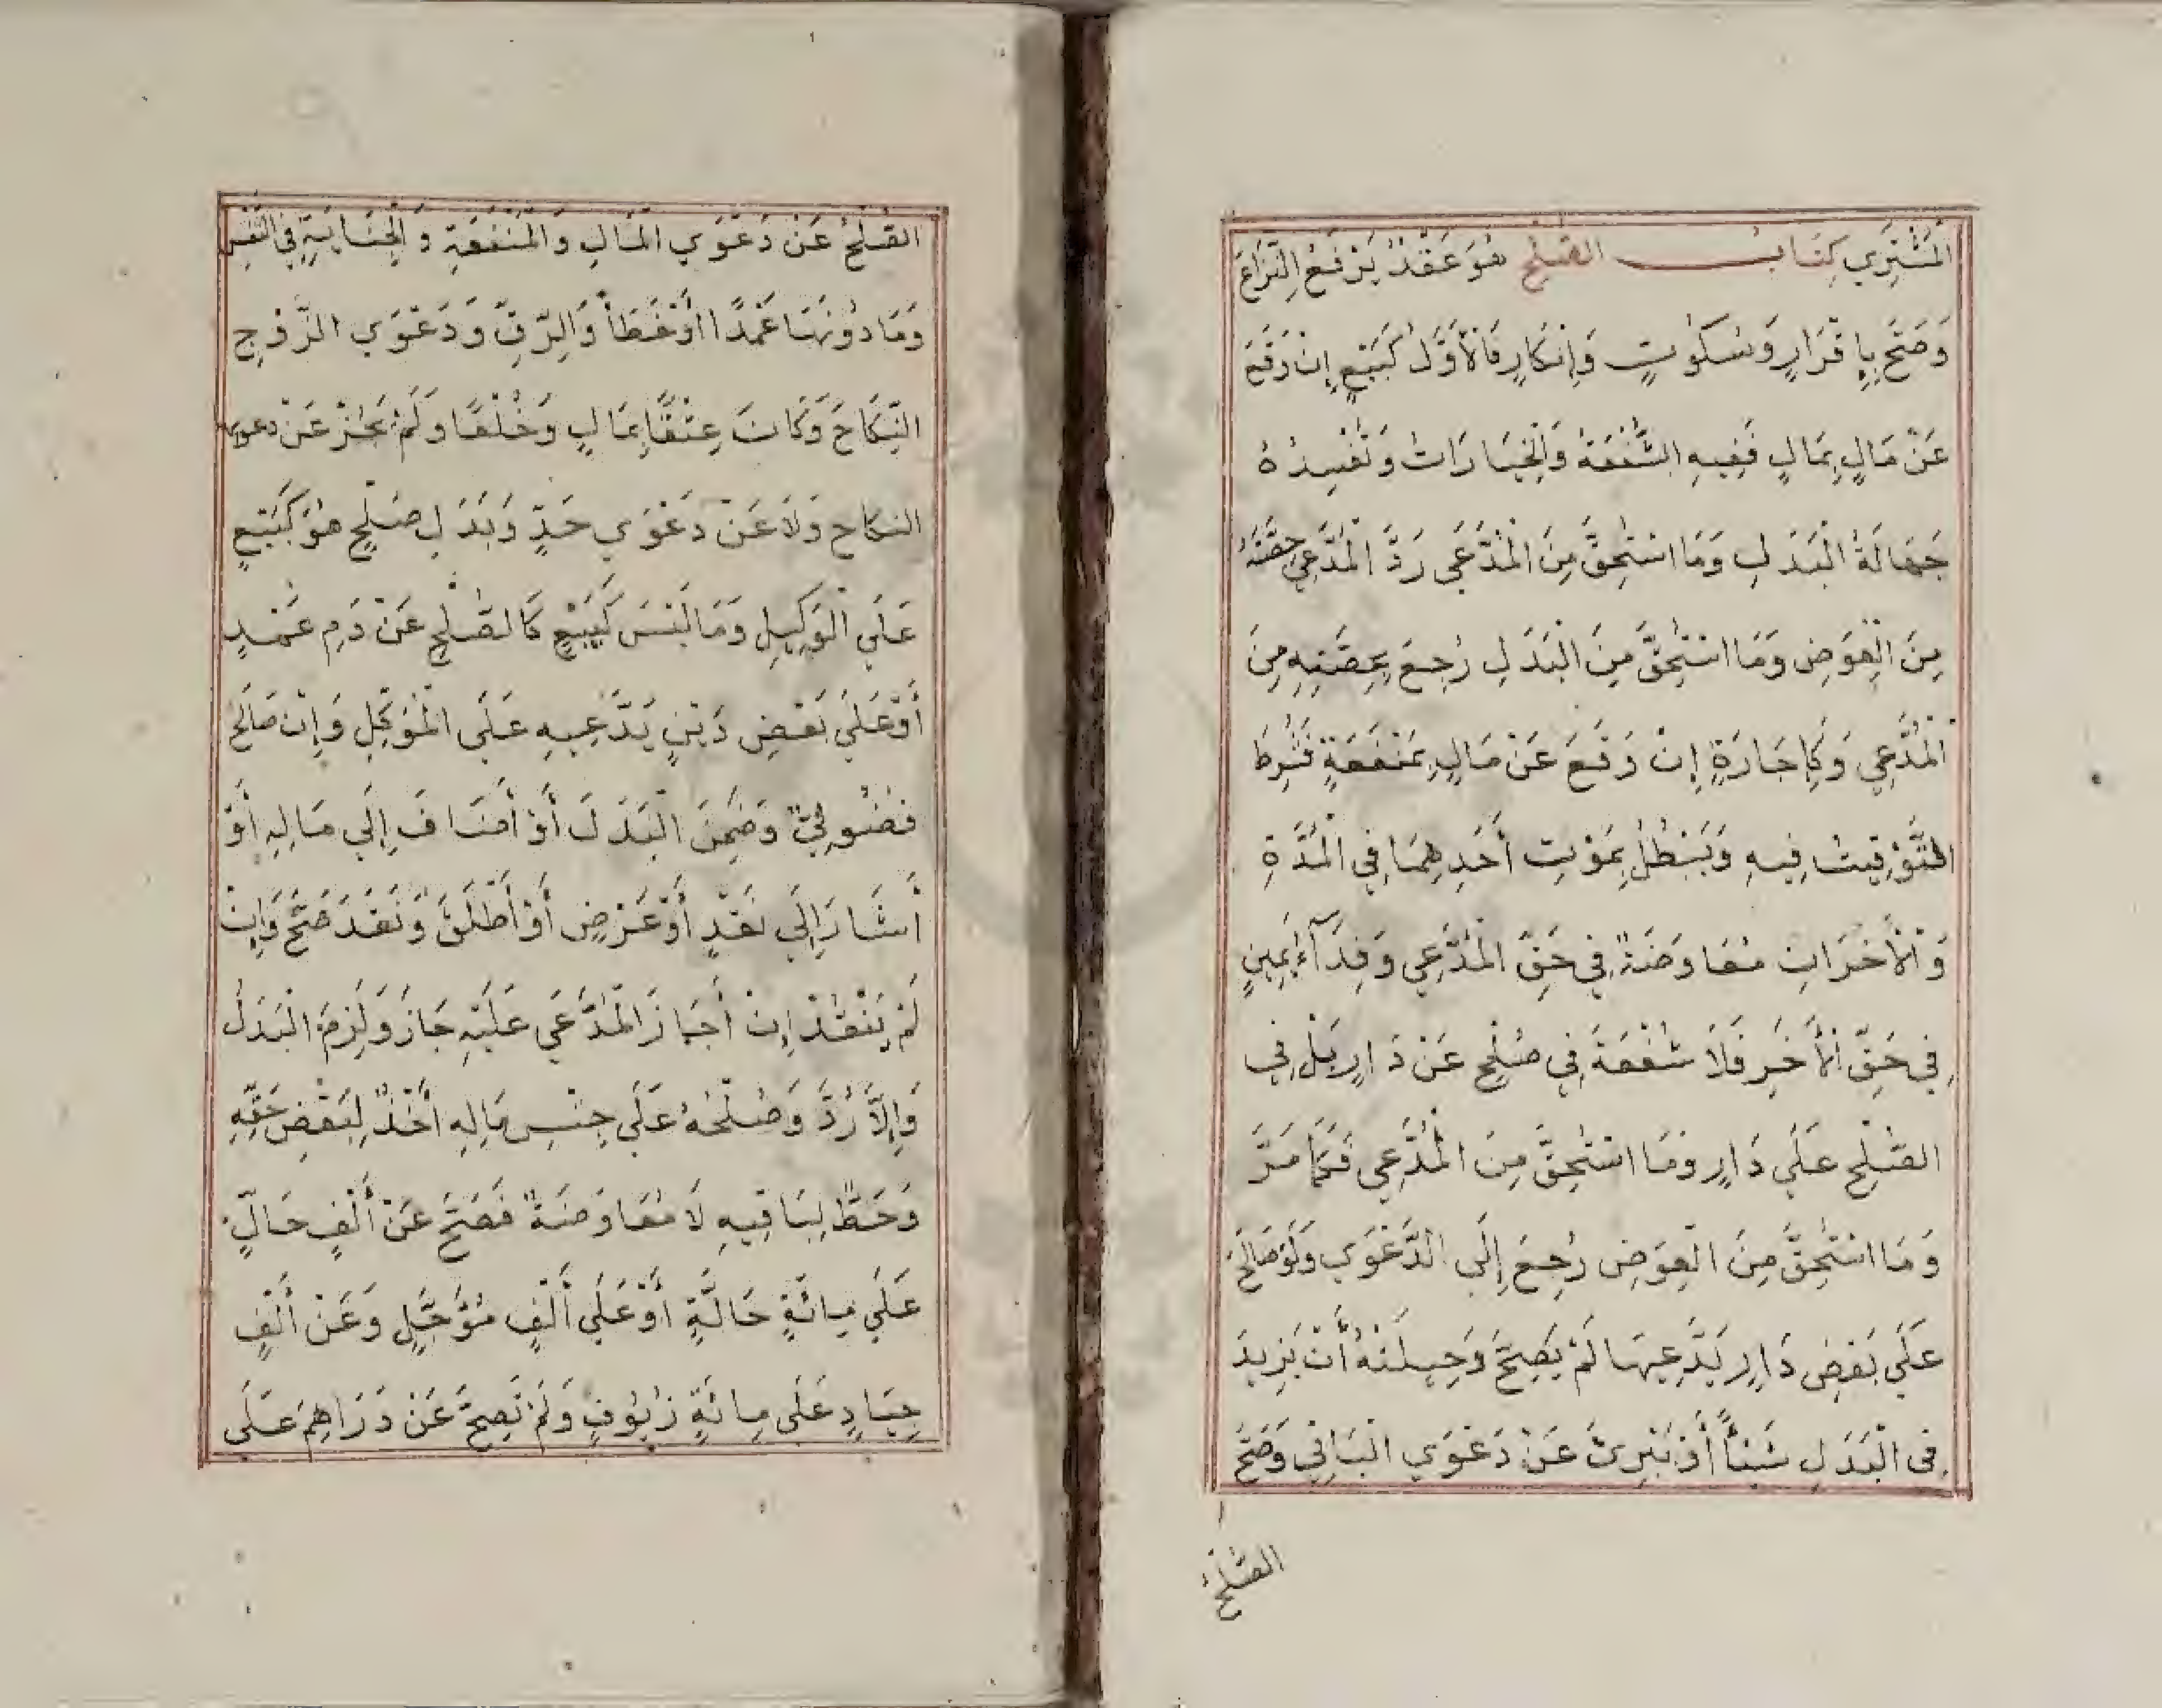 الْمُشْتَرِي كِتَابُ الصُّلْحِ هُوَ عَقْدٌ يَرْفَعُ النِّزَاعَ
وَصَحَّ بِإِقْرَارٍ وَسُكُوتٍ وَإِنْكَارٍ فَالْأَوَّلُ كَبَيْعٍ إِنْ وَقَعَ
عَنْ مَالٍ بِمَالٍ فَفِيهِ الشُّفْعَةُ وَالْخِيَارَاتُ وَتُفْسِدُهُ
جَهَالَةُ الْبَدَلِ وَمَا اسْتُحِقَّ مِنَ الْمُدَّعَي رَدَّ الْمُدَّعِي حِصَّتَهُ
مِنَ الْعِوَضِ وَمَا اسْتُحِقَّ مِنَ الْبَدَلِ رُجِعَ بِحِصَّتِهِ مِنَ
الْمُدَّعِي وَكَإِجَارَةٍ إِنْ وَقَعَ عَنْ مَالٍ بِمَنْفَعَةٍ فَشُرِطَ
التَّوْقِيتُ فِيهِ وَيَبْطُلُ بِمَوْتِ أَحَدِهِمَا فِي الْمُدَّةِ
وَالْأَخَرَانِ مُعَاوَضَةٌ فِي حَقِّ الْمُدَّعِي وَفِدَآءُ يَمِينٍ
فِي حَقِّ الْأَخَرِ فَلَا شُفْعَةَ فِي صُلْحٍ عَنْ دَارٍ بَلْ فِي
الصُّلْحِ عَلَي دَارٍ وَمَا اسْتُحِقَّ مِنَ الْمُدَّعِي فَكَمَا مَرَّ
وَمَا اسْتُحِقَّ مِنَ الْعِوَضِ رُجِعَ إِلَي الدَّعْوَي وَلَوْ صَالَحَ
عَلَي بَعْضِ دَارٍ يَدَّعِيهَا لَمْ يَصِحَّ وَحِيلَتُهُ أَنْ يَزِيدَ
فِي الْبَدَلِ شَيْئًا أَوْ يُبْرِئَ عَنْ دَعْوَي الْبَاقِي وَصَحَّ
الصُّلْحُ
الصُّلْحُ عَنْ دَعْوَي الْمَالِ وَالْمَنْفَعَةِ وَالْجِنَايَةِ فِي النَّفْسِ
وَمَا دُونَهَا عَمْدًا أَوْ خَطَأً وَالرِّقِّ وَدَعْوَي الزَّوْجِ
النِّكَاحَ وَكَانَ عِتْقًا بِمَالٍ وَخُلْعًا وَلَمْ يَجُزْ عَنْ دعوى
النكاح وَلَا عَنْ دَعْوَي حَدٍّ وَبَدَلِ صُلْحٍ هُوَ كَبَيْعٍ
عَلَي الْوَكِيلِ وَمَا لَيْسَ كَبَيْعٍ كَالصُّلْحِ عَنْ دَمِ عَمْدٍ
أَوْ عَلَي بَعْضِ دَيْنٍ يَدَّعِيهِ عَلَي الْمُوَكِّلِ وَإِنْ صَالَحَ
فُضُولِيٌّ وَضَمِنَ الْبَدَلَ أَوْ أَضَافَ إِلَي مَالِهِ أَوْ
أَشَارَ إِلَي نَقْدٍ أَوْ عَرْضٍ أَوْ أَطْلَقَ وَنَقَدَ صَحَّ وَإِنْ
لَمْ يَنْقُدْ إِنْ أَجَازَ الْمُدَّعَي عَلَيْهِ جَازَ وَلَزِمَ الْبَدَلُ
وَإِلَّا رُدَّ وَصُلْحُهُ عَلَي جِنْسِ مَالِهِ أَخْذٌ لِبَعْضِ حَقِّهِ
وَحَطٌّ لِبَاقِيهِ لَا مُعَاوَضَةٌ فَصَحَّ عَنْ أَلْفٍ حَالٍّ
عَلَي مِائَةٍ حَالَّةٍ أَوْ عَلَي أَلْفٍ مُؤَجَّلٍ وَعَنْ أَلْفٍ
جِيَادٍ عَلَي مِائَةٍ زُيُوفٍ وَلَمْ تَصِحَّ عَنْ دَرَاهِمَ عَلَي